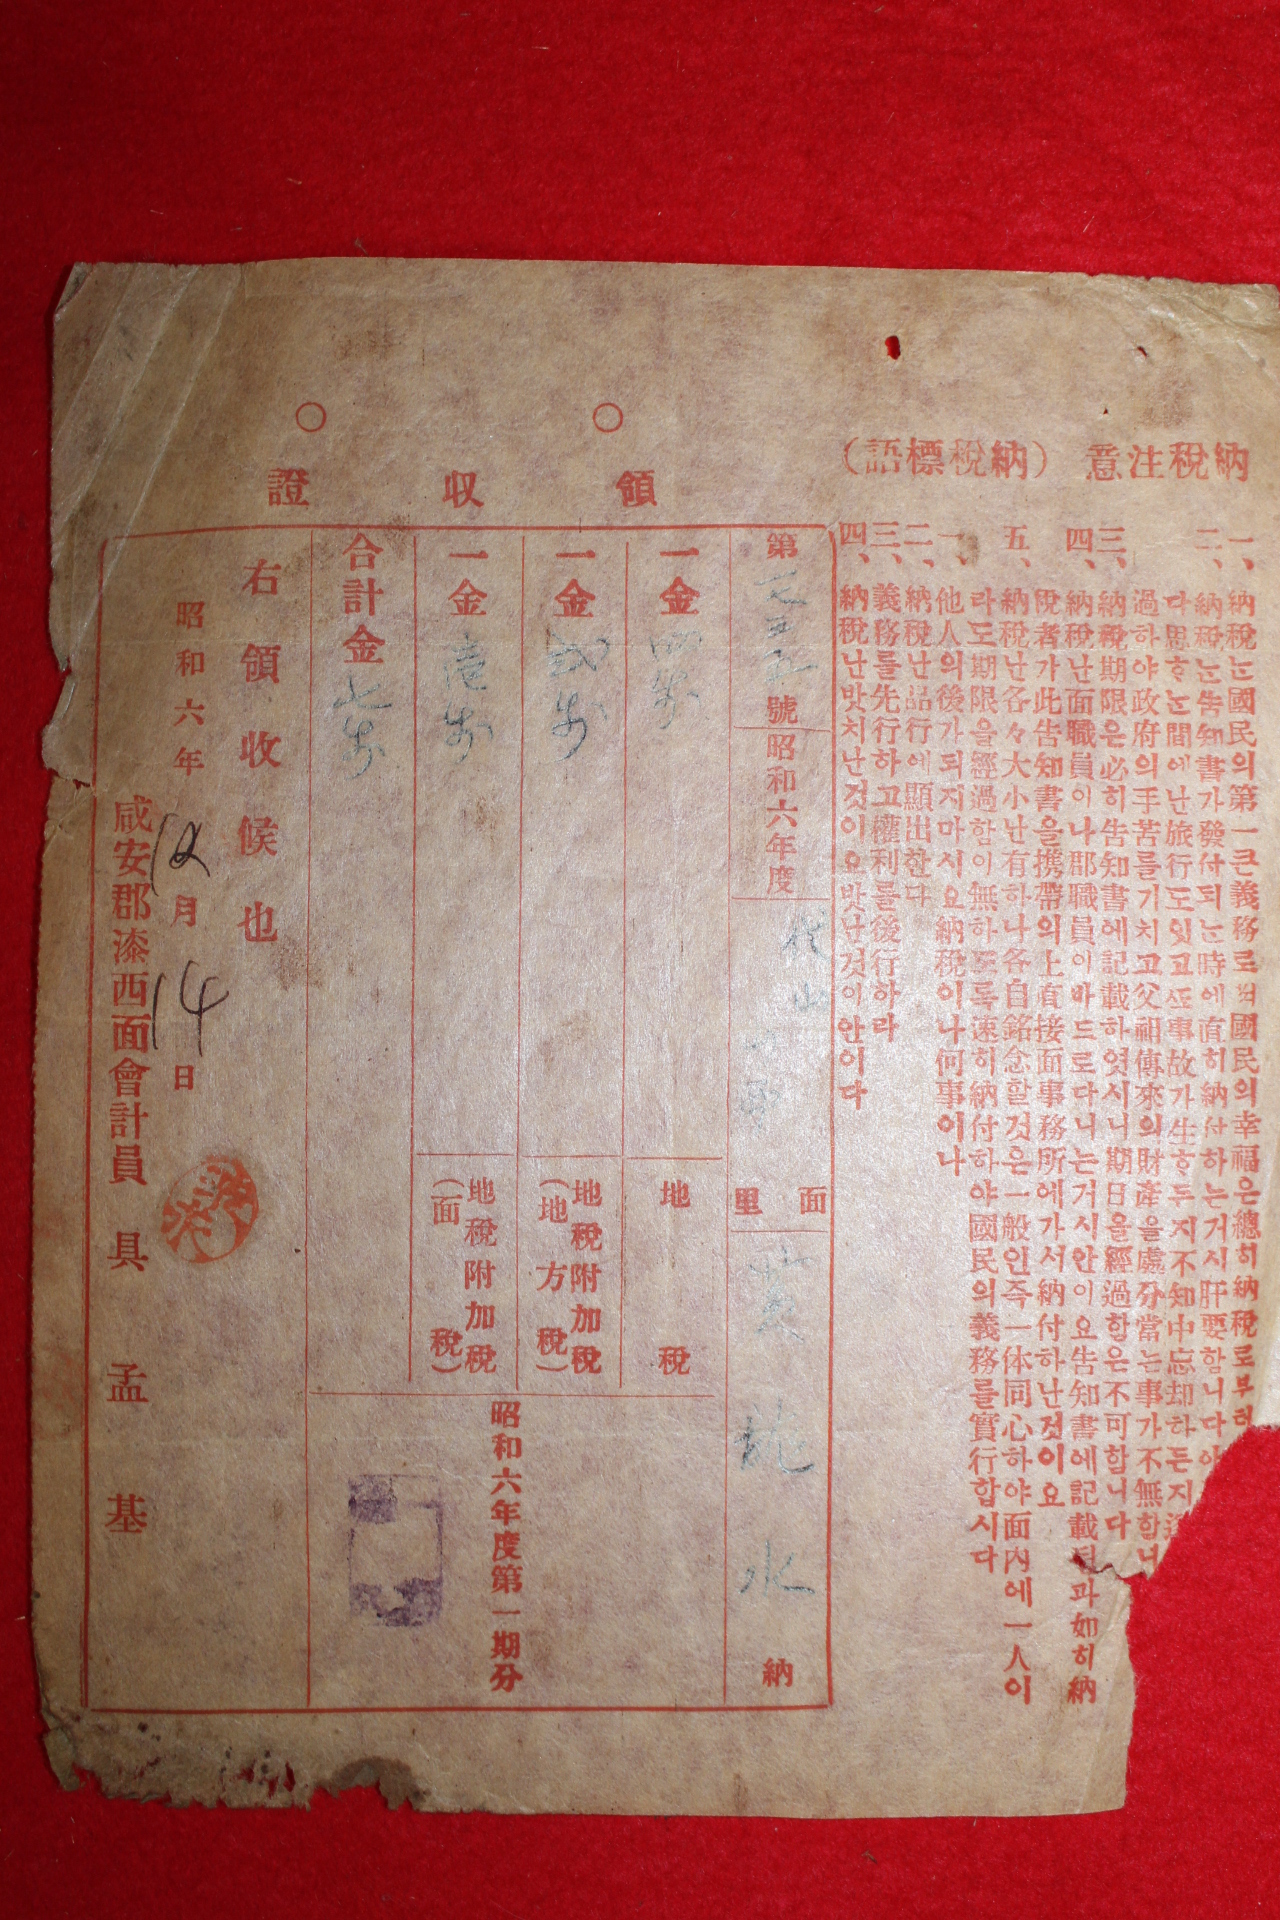 納稅注意 (納稅標語)
一、納稅는國民의第一큰義務로써國民의幸福은總히納稅로부터
二、納稅는告知書가發付되는時에直히納付하는거시肝要함니다
다思ᄒᆞ는間에난旅行도잇고ᄯᅩ事故가生ᄒᆞ든지不知中忘却하든지
過하야政府의手苦를기치고父祖傳來의財產을處分當는事가不無합니
三、納稅期限은必히告知書에記載하엿시니期日을經過함은不可합니다
四、納稅난面職員이나郡職員이바드로다니는거시안이요告知書에記載된과如히納
稅者가此告知書을携帶의上直接面事務所에가서納付하난것이요
五、納稅난各々大小난有하나各自銘念할것은一般인즉一体同心하야面內에一人이
라도期限을經過함이無하도록速히納付하야國民의義務를實行합시다
一、他人의後가되지마시요納稅이나何事이나
二、納稅난品行에顯出한다
三、義務를先行하고權利를後行하라
四、納稅난맛치난것이요밧난것이안이다
○領收證○
第 號 昭和六年度 面 里 水 納
一金四拾 地稅
一金 地稅附加稅(地方稅)
一金 地稅附加稅(面稅)
合計金七
昭和六年度第一期分
右領收候也
昭和六年12月14日
咸安郡漆西面會計員 具孟基